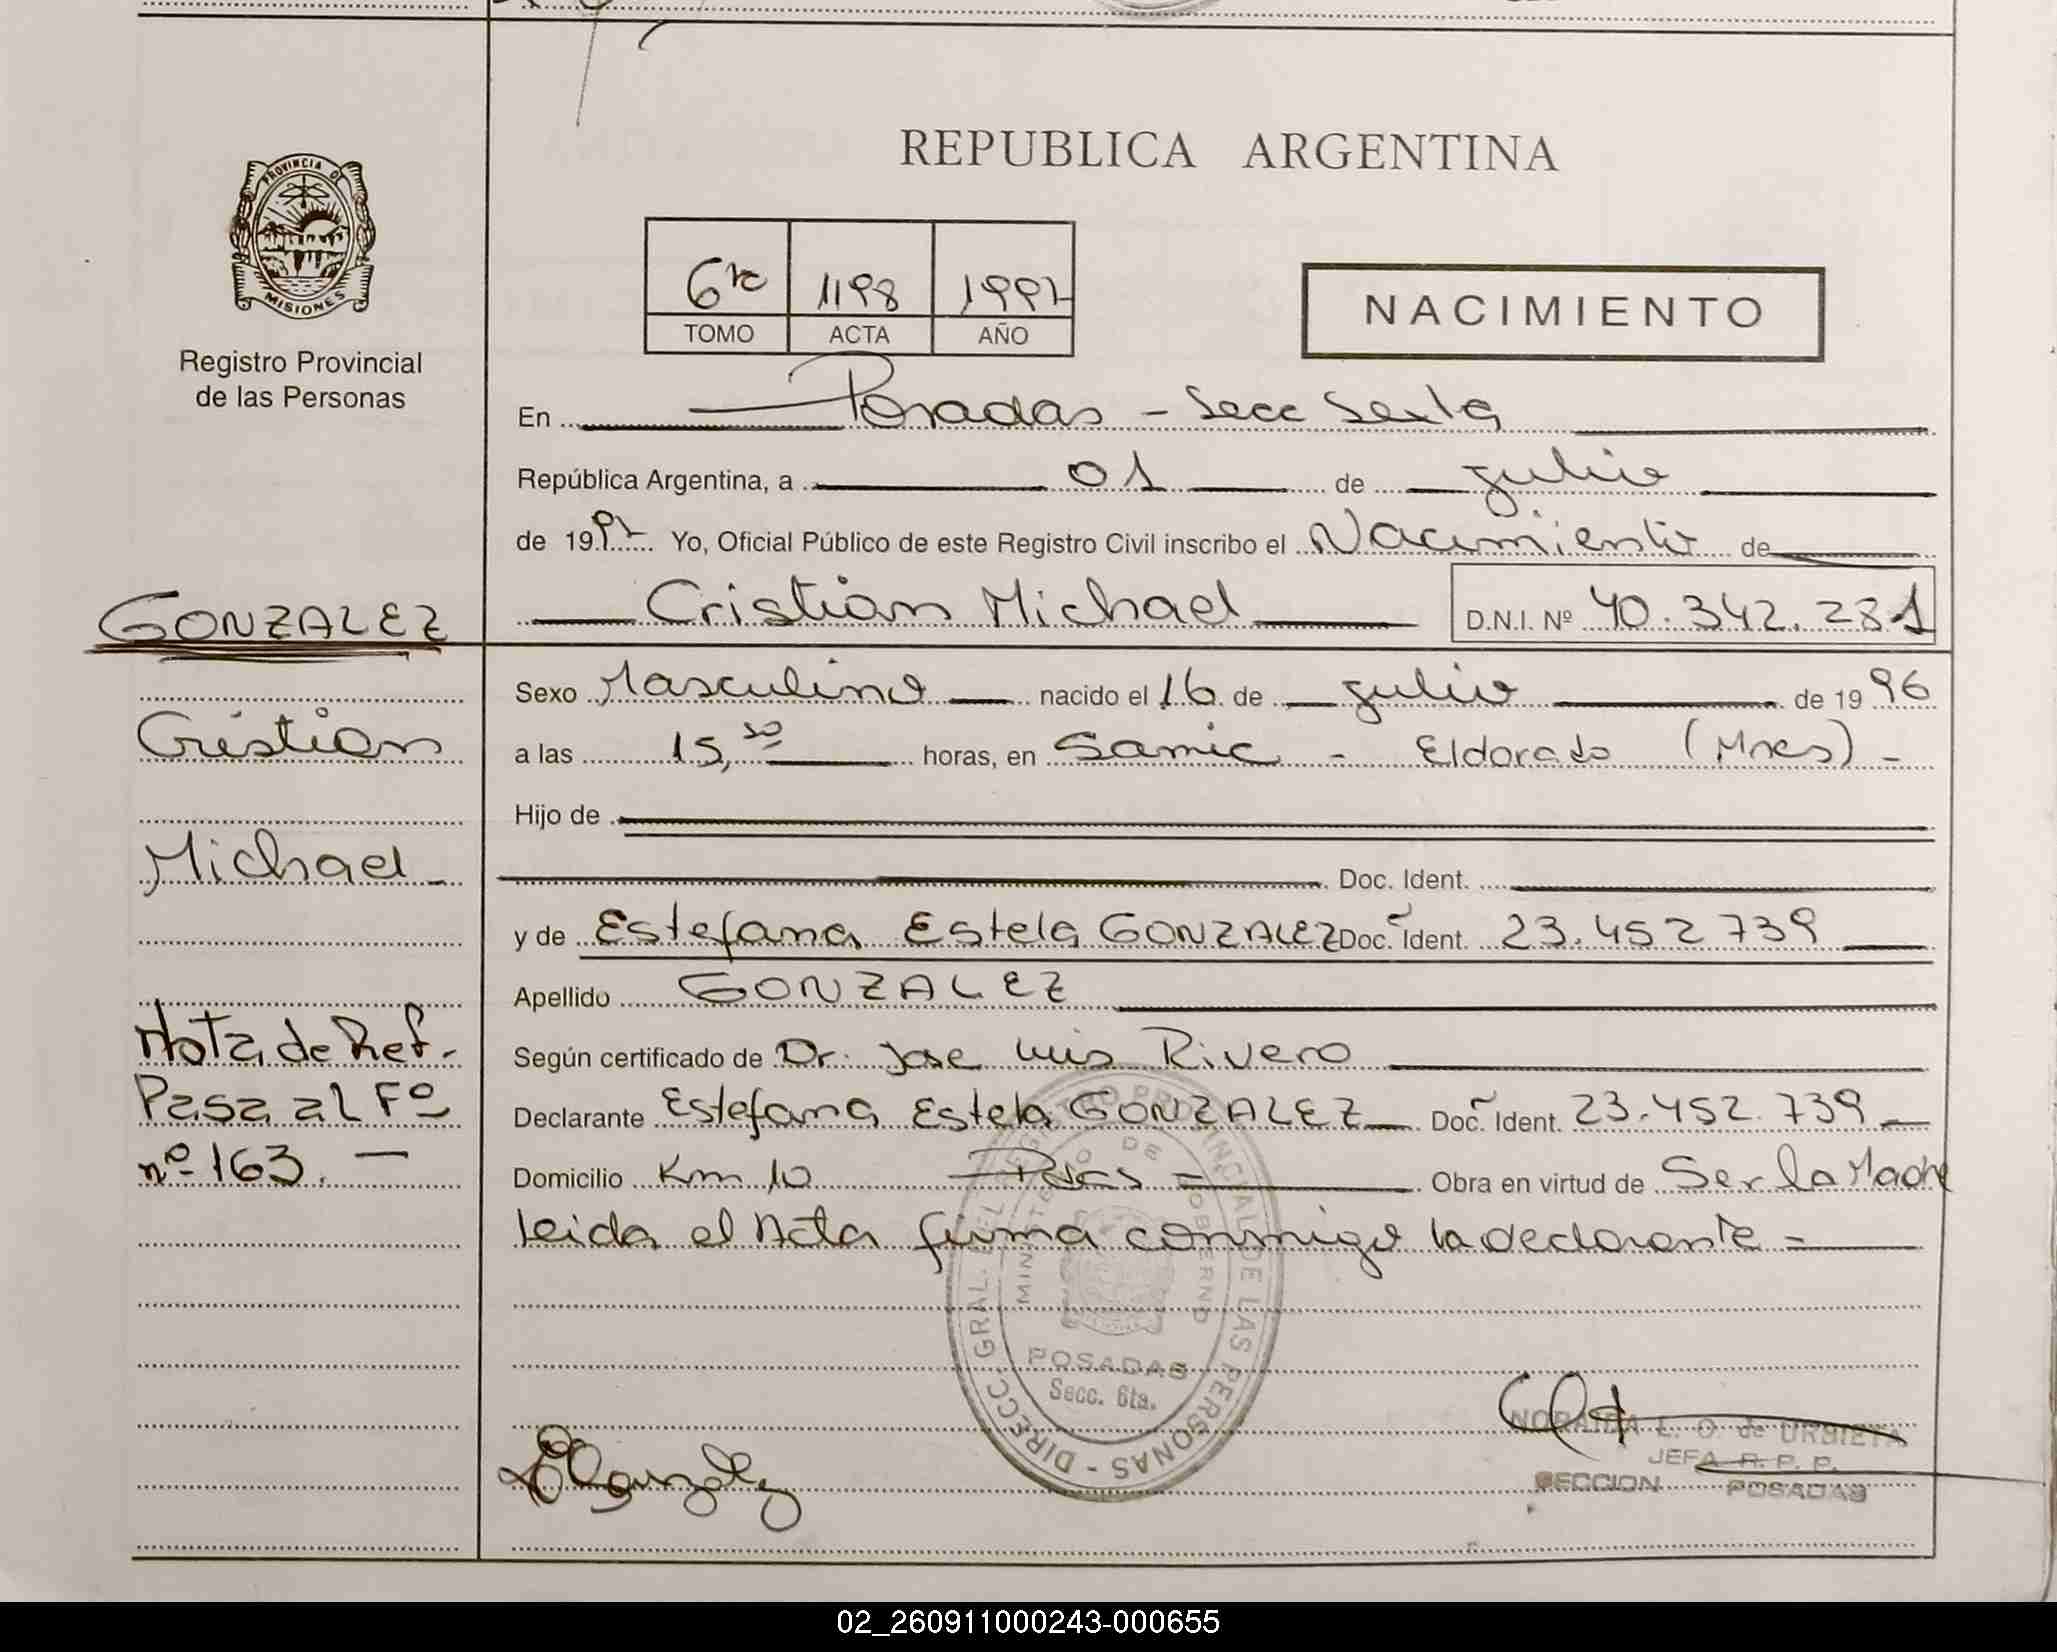 REPUBLICA ARGENTINA
PROVINCIA DE
MISIONES
Registro Provincial
de las Personas
6ta 1198 1997
TOMO ACTA AÑO
NACIMIENTO
En Posadas - Secc Sexta
República Argentina, a 01 de julio
de 1997 Yo, Oficial Público de este Registro Civil inscribo el Nacimiento de
Cristian Michael D.N.I. Nº 40.342.281
GONZALEZ
Cristian
Michael
Nota de Ref.
Pasa al Fº
nº 163.
Sexo Masculino nacido el 16 de julio de 1996
a las 15,30 horas, en Samic - Eldorado (Mnes) -
Hijo de
Doc. Ident.
y de Estefana Estela GONZALEZ Doc. Ident. 23.452.739
Apellido GONZALEZ
Según certificado de Dr. Jose Luis Rivero
Declarante Estefana Estela GONZALEZ Doc. Ident. 23.452.739
Domicilio Km 10 Pdas Obra en virtud de Ser la Madre
leida el Acta firma conmigo la declarante -
DIRECC. GRAL. DEL REGISTRO PROVINCIAL DE LAS PERSONAS
MINISTERIO DE GOBIERNO
POSADAS
Secc. 6ta.
EGonzalez
NORAIDA L. O. de URBIETA
JEFA R. P. P.
SECCION POSADAS
02_260911000243-000655